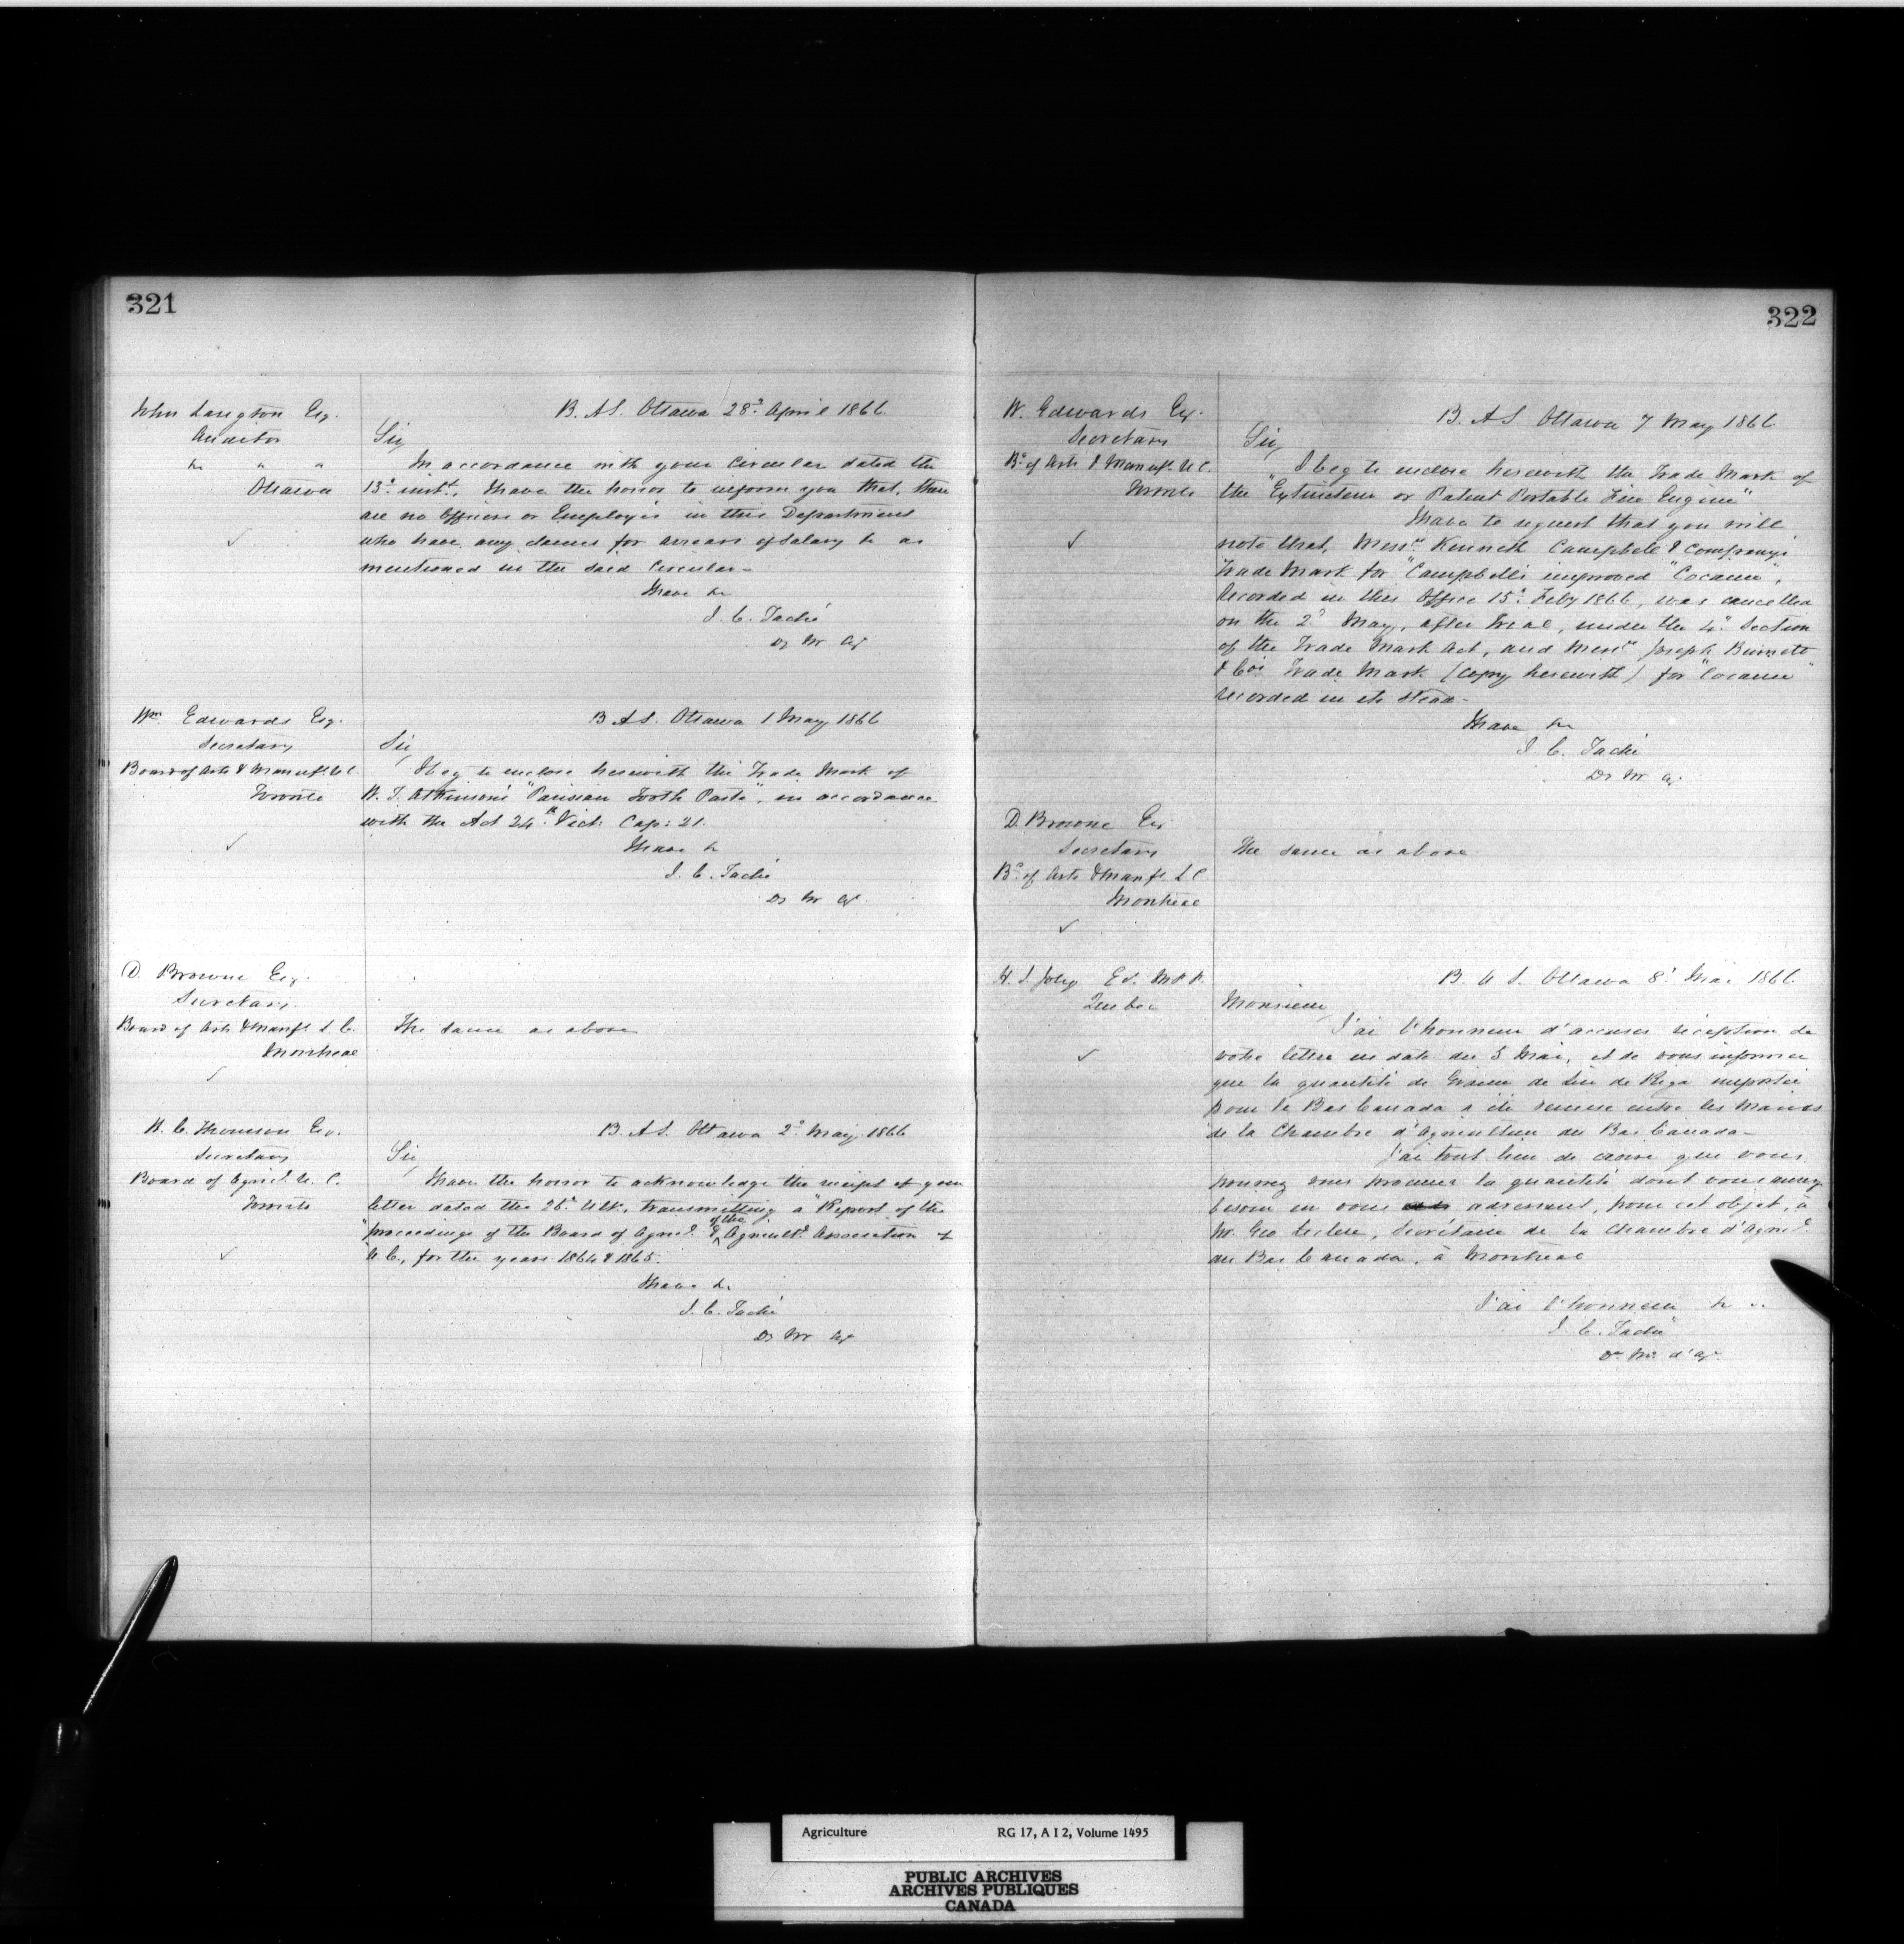 321
John Langton Esq.
Auditor
&c " "
Ottawa
B. A S. Ottawa 28th April 1866
Sir,
In accordance with your Circular dated the
13th inst., I have the honor to inform you that, there
are no Officers or Employés in this Department
who have any claims for arrears of Salary &c as
mentioned in the said Circular-
I have &c
J. C. Taché
Dy Mr Ag
Wm Edwards Esq.
Secretary
Board of Arts & Manufs. U C.
Toronto
B A S. Ottawa 1 May 1866
Sir,
I beg to enclose herewith the Trade Mark of
H. T. Atkinson's "Parisian Tooth Paste", in accordance
with the Act 24th Vict: Cap: 21.
I have &c
J. C. Taché
Dy Mr Ag.
D. Browne Esq.
Secretary
Board of Arts & Manfs. L. C.
Montreal
The same as above
H. C. Thomson Esq.
Secretary
Board of Agricl. U. C.
Toronto
B. A S. Ottawa 2d May 1866
Sir,
I have the honor to acknowledge the receipt of your
letter dated the 26th Ulto., transmitting a "Report of the
proceedings of the Board of Agricl. & of the Agricultl. Association of
U. C., for the years 1864 & 1865.
I have &c
J. C. Taché
Dy Mr Ag
322
W. Edwards Esq.
Secretary
Bd. of Arts & Manufs. U C.
Toronto
B. A S Ottawa 7 May 1866
Sir,
I beg to enclose herewith the Trade Mark of
the "Extincteur or Patent Portable Fire Engine"
I have to request that you will
note that, Messrs. Kenneth Campbell & Company's
Trade Mark for "Campbell's improved "Cocaine",
Recorded in this Office 15th Feby 1866, was cancelled
on the 2d May, after Trial, under the 4th Section
of the Trade Mark Act, and Messrs. Joseph Burnett
& Co's Trade Mark (copy herewith) for "Cocaine"
recorded in its stead-
I have &c
J. C. Taché
Dy Mr Ag.
D. Browne Esq
Secretary
Bd. of Arts & Manfs. L C.
Montreal
The same as above.
H. G. Joly Es. M P P.
Quebec
B. A S. Ottawa 8. Mai 1866.
Monsieur,
J'ai l'honneur d'accuser réception de
votre lettre en date du 5 Mai, et de vous informer
que la quantité de Graine de Lin de Riga importée
pour le Bas Canada a été remise entre les mains
de la Chambre d'Agriculture du Bas Canada-
J'ai tout lieu de croire que vous
pourrez vous procurer la quantité dont vous aurez
besoin en vous adressant, pour cet objet, à
Mr. Geo Leclere, Secrétaire de la Chambre d'Agricl.
du Bas Canada, à Montréal
J'ai l'honneur &c ..
J. C. Taché
De. Me. d'Ag.
Agriculture RG 17, A I 2, Volume 1495
PUBLIC ARCHIVES
ARCHIVES PUBLIQUES
CANADA